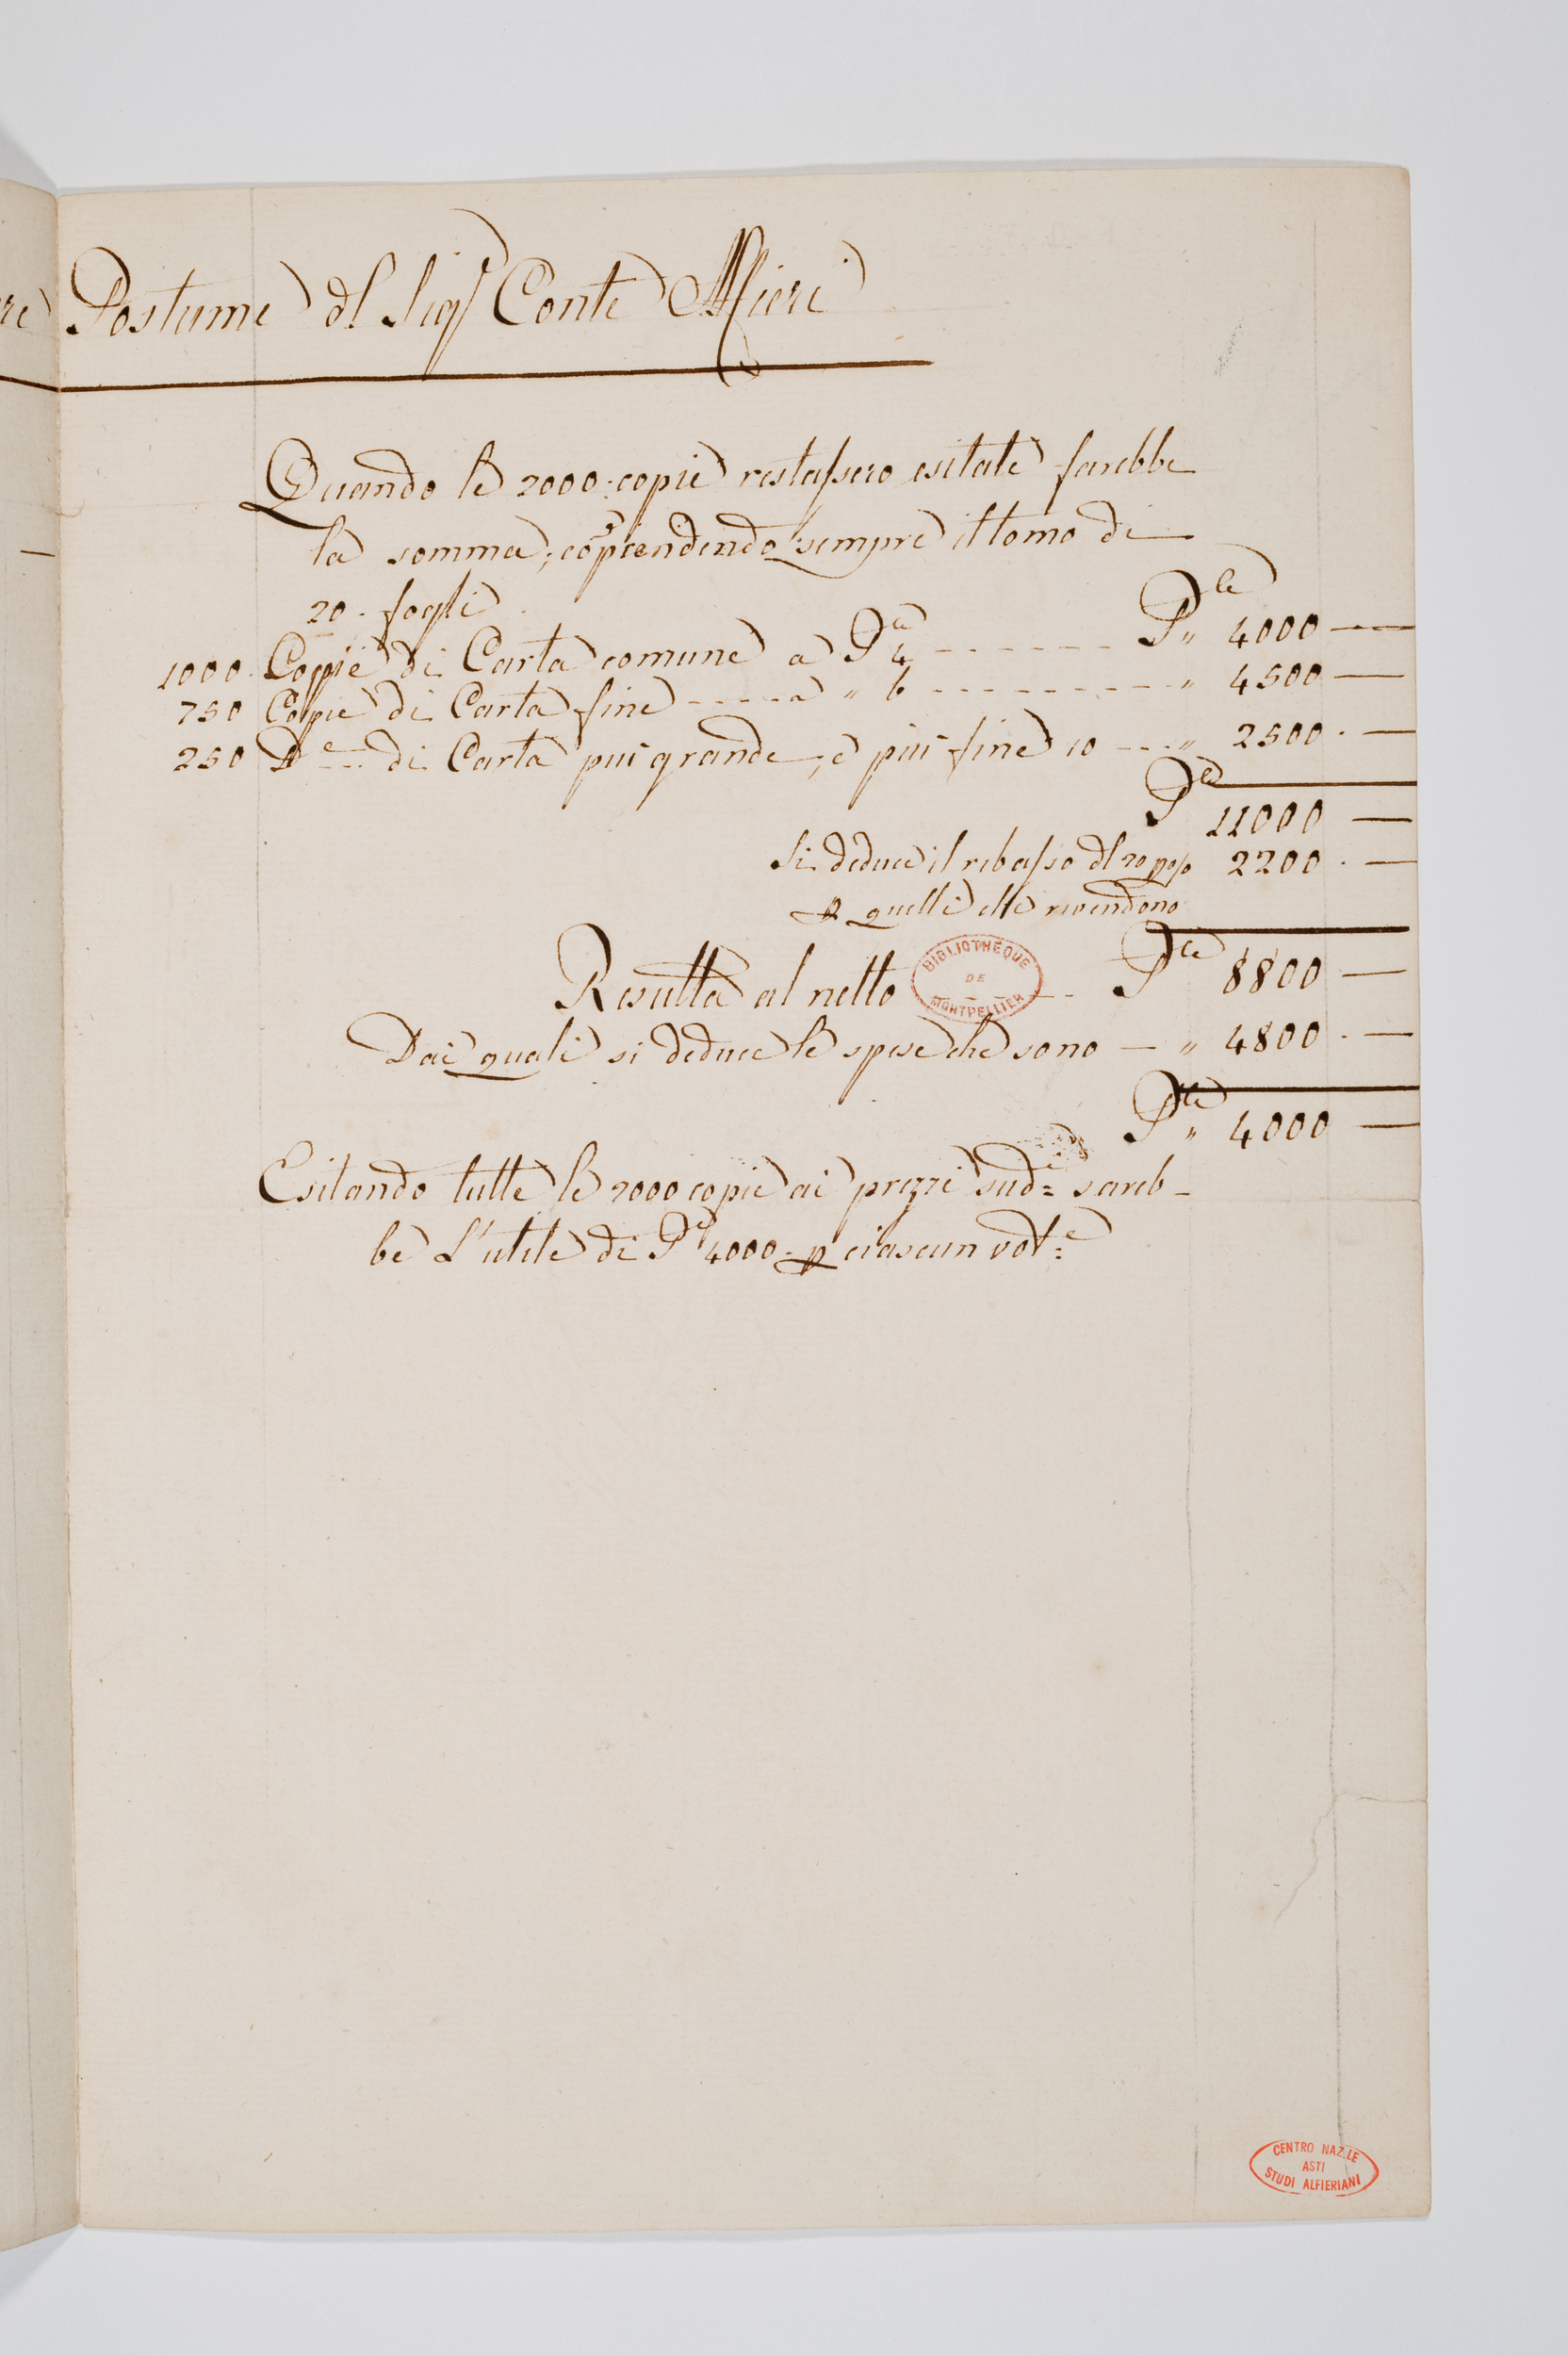 re Postume dl Sigr Conte Alfieri
Quando le 2000: copie restassero esitate sarebbe
la somma, cōprendendo sempre il tomo di
20. fogli
1000. Copie di Carta comune a Pe 4 ------ Ple „ 4000 —
750 Copie di Carta fine ---- a „ 6 -------- „ 4500 —
250 De --- di Carta piu grande, e piu fine 10 --- „ 2500. —
Pe 11000 —
Si deduce il rebasso dl 20 po/o 2200. —
p quelli che rivendono
Resulta al netto --- Ple 8800 —
BIBLIOTHÈQUE
DE
MONTPELLIER
Dai quali si deduce le spese che sono — „ 4800. —
Ple „ 4000 —
Esitando tutte le 2000 copie ai prezzi sudi= sareb-
be L'utile di Pe 4000. p ciascun vole=
CENTRO NAZ.LE
ASTI
STUDI ALFIERIANI